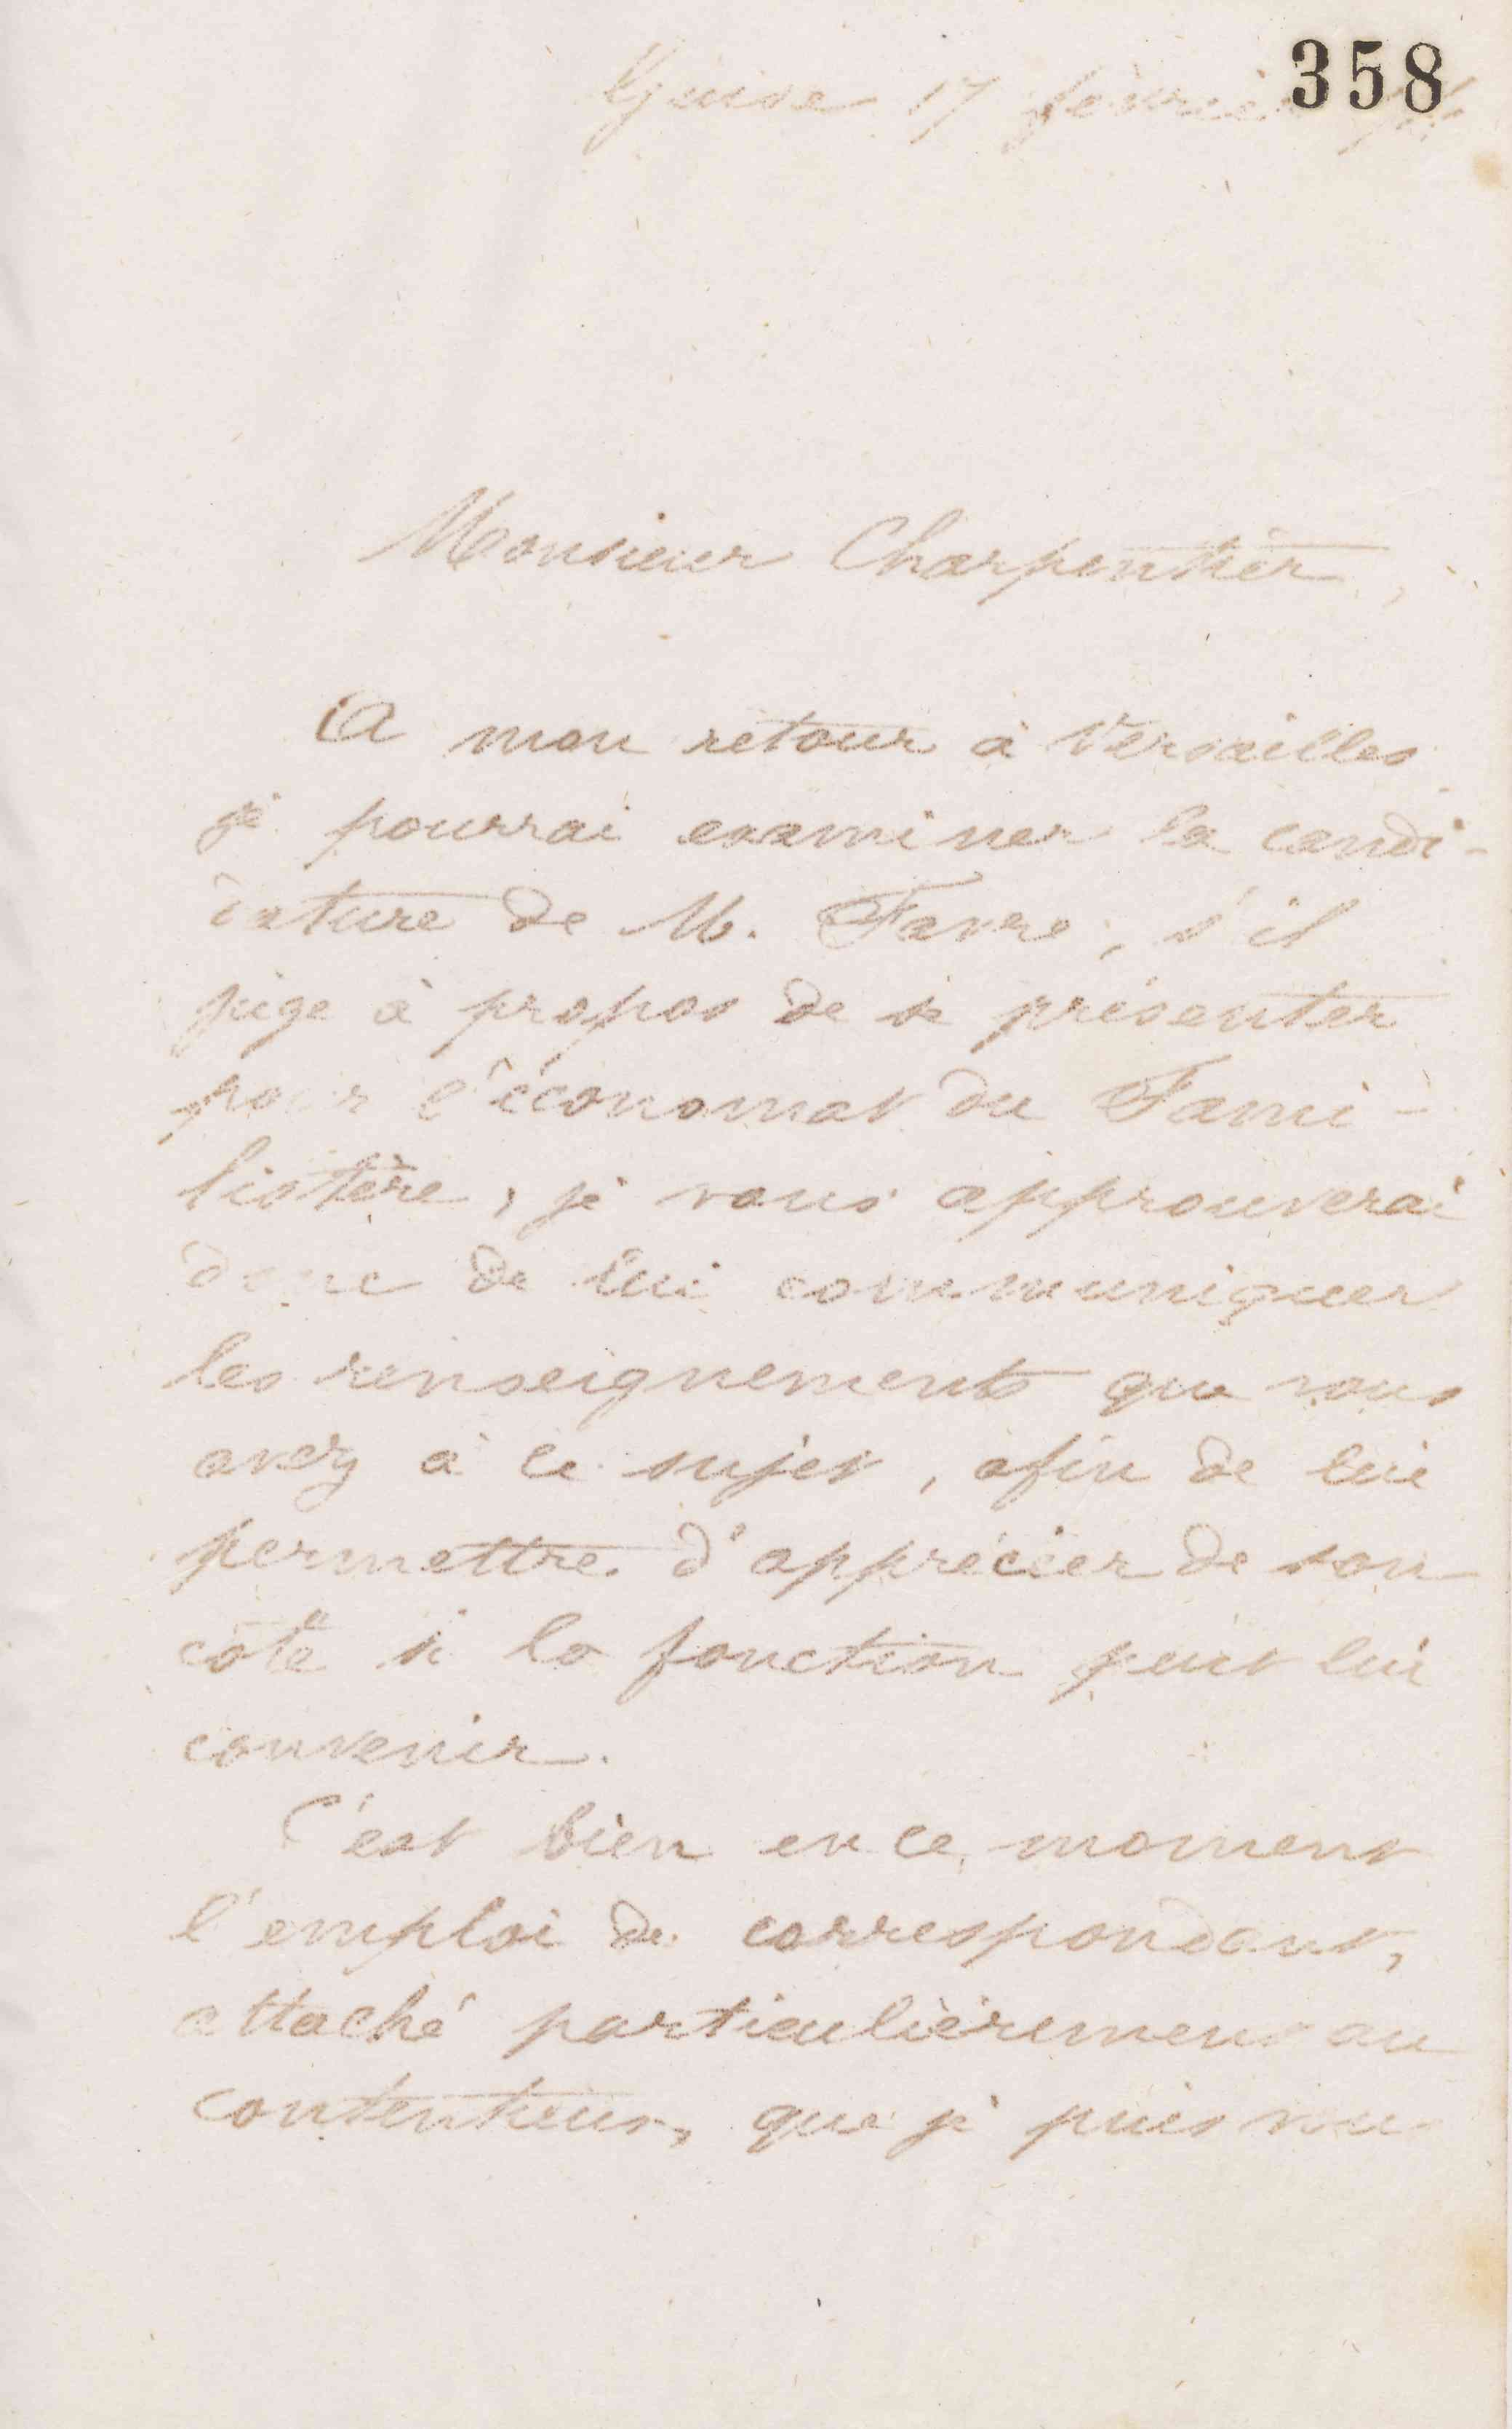 358
Guise 17 février
Monsieur Charpentier,
A mon retour à Versailles
je pourrai examiner la candi-
dature de M. Favre, s'il
juge à propos de se présenter
pour l'économat du Fami-
listère, je vous approuverai
donc de lui communiquer
les renseignements que vous
avez à ce sujet, afin de lui
permettre d'apprécier de son
côté si la fonction peut lui
convenir.
C'est bien en ce moment
l'emploi de correspondant,
attaché particulièrement au
contentieux, que je puis vous